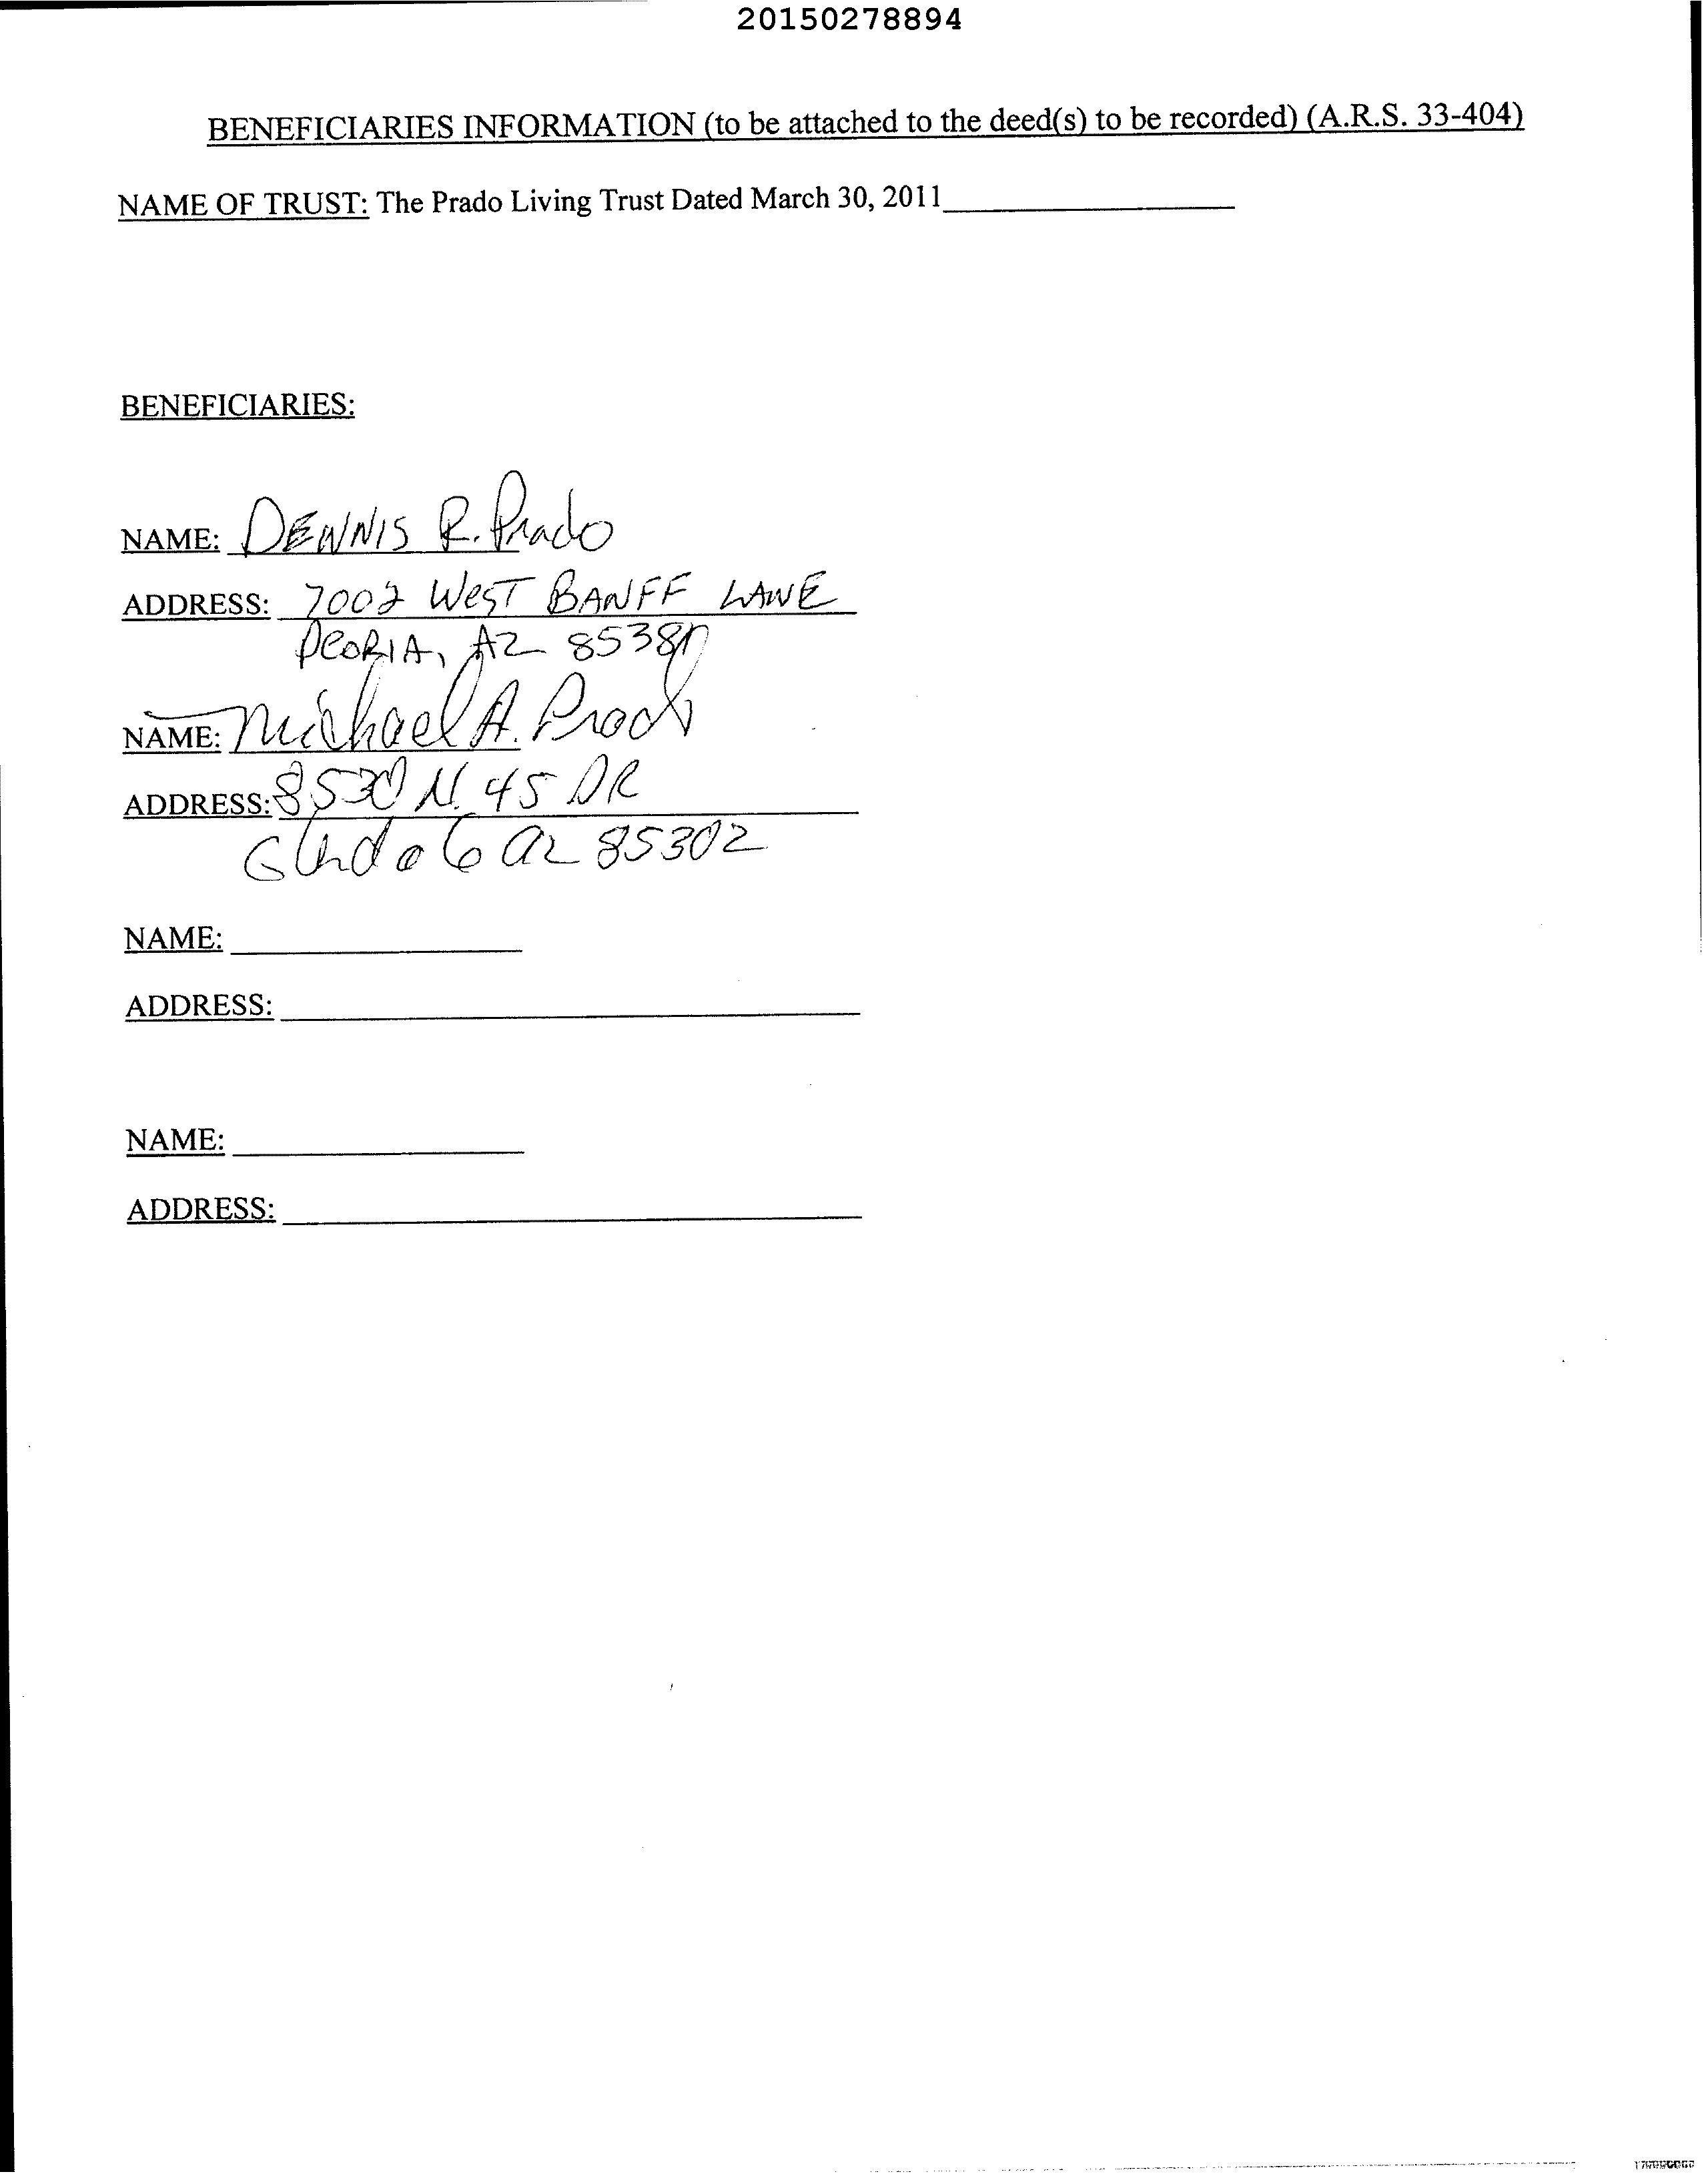 20150278894
BENEFICIARIES INFORMATION (to be attached to the deed(s) to be recorded) (A.R.S. 33-404)
NAME OF TRUST: The Prado Living Trust Dated March 30, 2011
BENEFICIARIES:
NAME: DENNIS R. Prado
ADDRESS: 7002 WEST BANFF LANE
PEORIA, AZ
NAME: Michael A. Prado
ADDRESS: 8530 N. 45 DR
Glendale az 85302
NAME:
ADDRESS:
NAME:
ADDRESS: